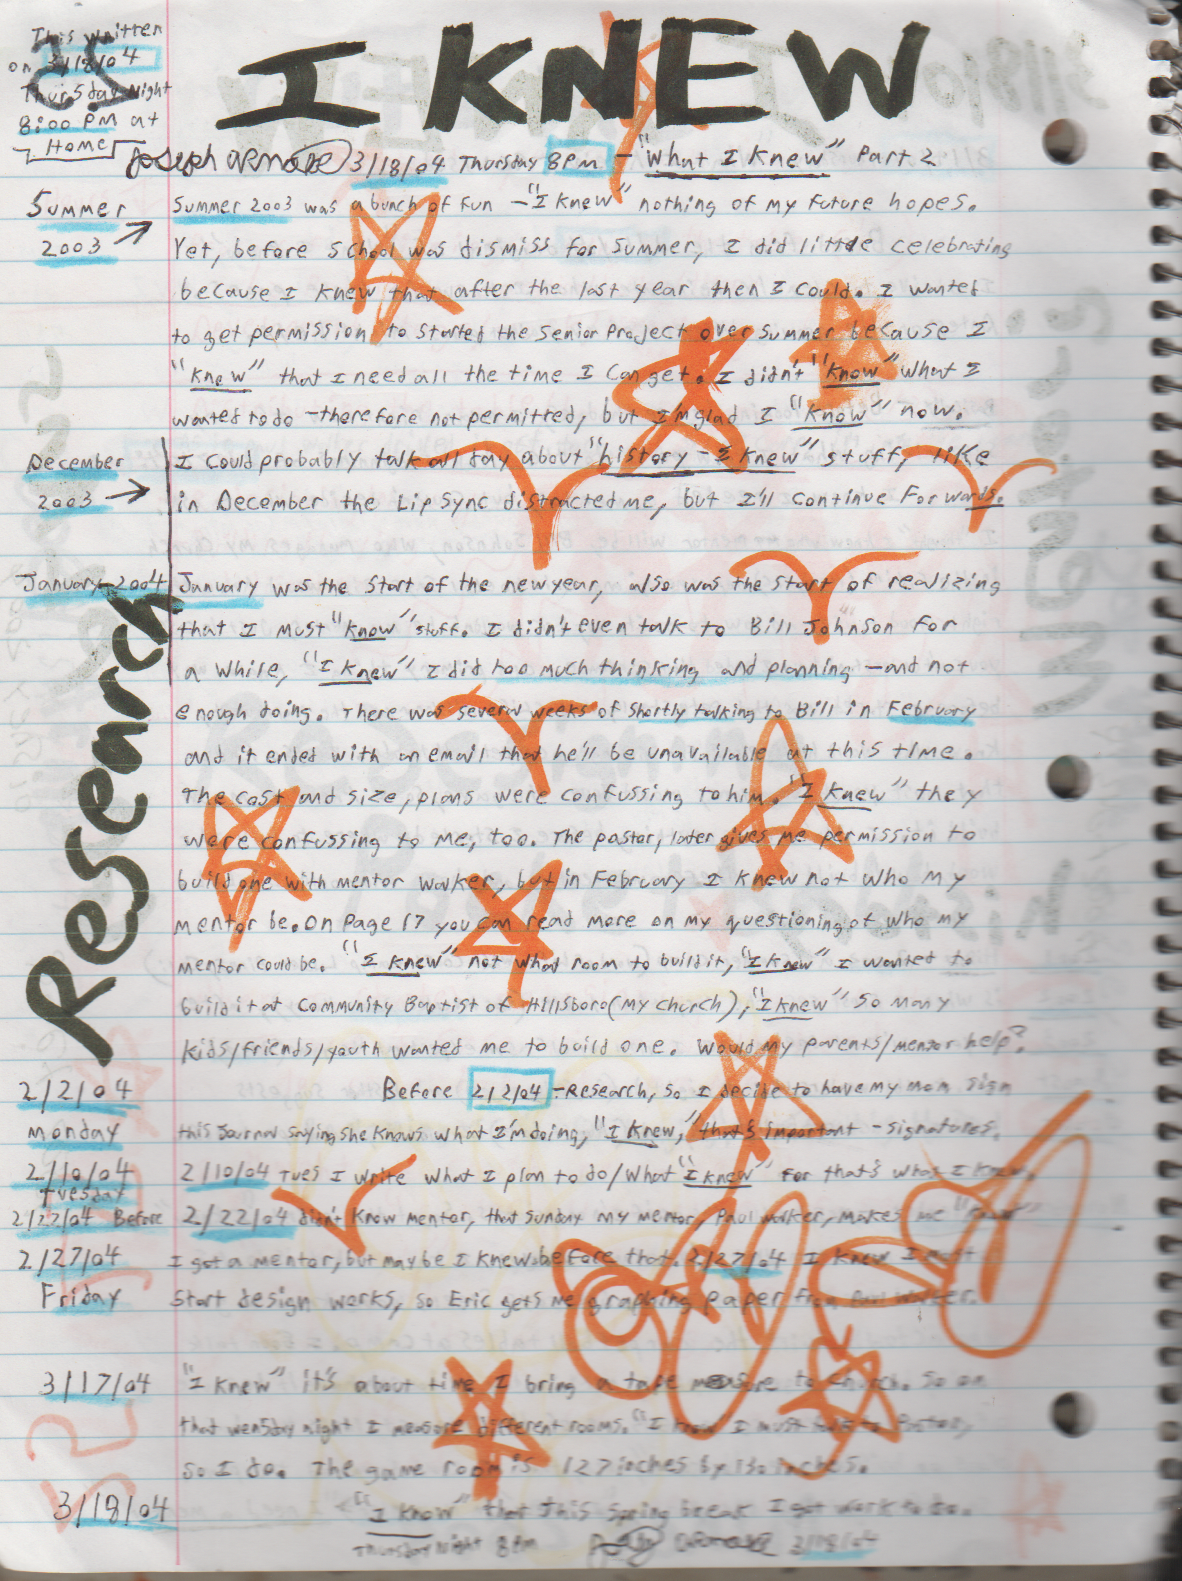 This written
on 3/18/04
Thursday Night
8:00 PM at
Home
25
I KNEW
3/18/04 Thursday 8PM - "What I Knew" Part 2
Summer
2003
Summer 2003 was a bunch of fun - "I knew" nothing of my future hopes.
Yet, before school was dismiss for summer, I did little celebrating
because I knew that after the last year then I could. I wanted
to get permission to started the senior project over summer because I
"knew" that I need all the time I can get. I didn't "know" what I
wanted to do - therefore not permitted, but I'm glad I "know" now.
December
2003
I could probably talk all day about "history - I knew" stuff, like
in December the Lip Sync distracted me, but I'll continue forwards.
January 2004
January was the start of the new year, also was the start of realizing
that I must "know" stuff. I didn't even talk to Bill Johnson for
a while, "I knew" I did too much thinking and planning - and not
enough doing. There was several weeks of shortly talking to Bill in February
and it ended with an email that he'll be unavailable at this time.
The cost and size, plans were confussing to him. "I knew" they
were confussing to me, too. The pastor, later gives me permission to
build one with mentor worker, but in February I knew not who my
mentor be. On page 17 you can read more on my questioning of who my
mentor could be. "I knew" not what room to build it, "I knew" I wanted to
build it at Community Baptist of Hillsboro (my church), "I knew" so many
kids/friends/youth wanted me to build one. Would my parents/mentor help?
Research
2/2/04
Monday
Before 2/2/04 - Research, so I decide to have my mom sign
this journal saying she knows what I'm doing, "I knew," that's important - signatures.
2/10/04
Tuesday
2/10/04 Tues I write what I plan to do/what "I knew" for that's what I knew.
2/22/04 Before
2/22/04 didn't know mentor, that sunday my mentor, Paul Walker, makes me "know"
2/27/04
Friday
I got a mentor, but maybe I knew before that. 2/27/04 I knew I must
start design works, so Eric gets me graphing paper from Paul Walker.
3/17/04
"I knew" it's about time I bring a tape measure to church. So on
that wensday night I measure different rooms. "I know" I must talk to Pastor,
so I do. The game room is 127 inches by 130 inches.
3/18/04
"I know" that this spring break I got work to do.
Thursday Night 8PM 3/18/04